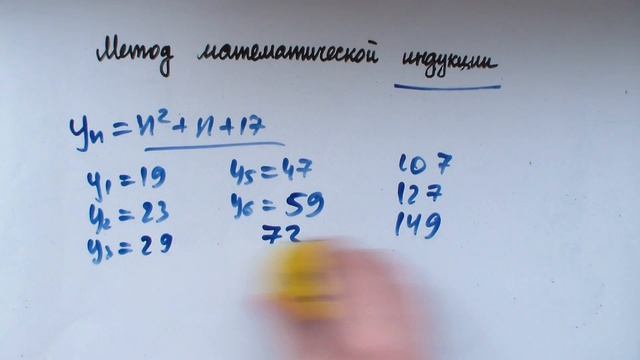 Метод математической индукции
yₙ = n² + n + 17
y₁ = 19
y₂ = 23
y₃ = 29
y₅ = 47
y₆ = 59
107
127
149